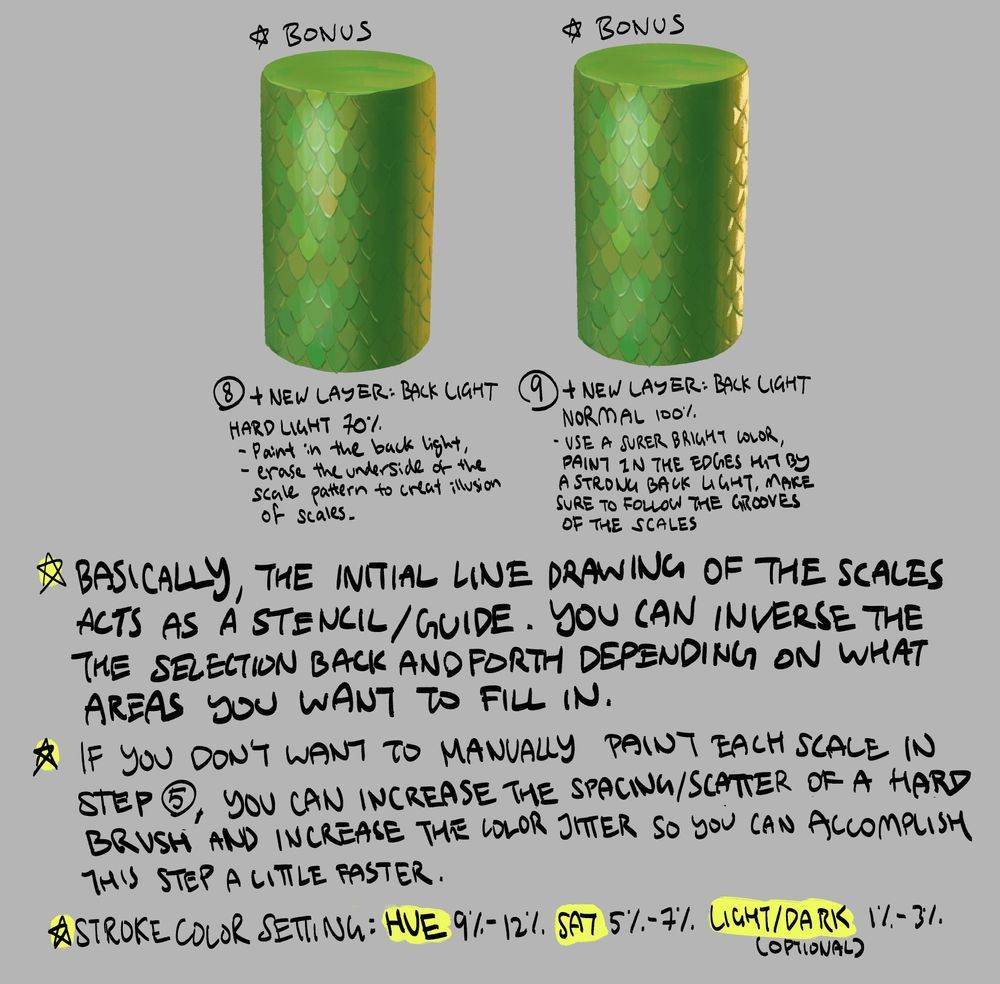 ☆ BONUS
☆ BONUS
⑧ + NEW LAYER: BACK LIGHT
HARD LIGHT 70%
- Paint in the back light,
- erase the underside of the
scale pattern to creat illusion
of scales.
⑨ + NEW LAYER: BACK LIGHT
NORMAL 100%
- USE A SUPER BRIGHT COLOR,
PAINT IN THE EDGES HIT BY
A STRONG BACK LIGHT, MAKE
SURE TO FOLLOW THE GROOVES
OF THE SCALES
☆ BASICALLY, THE INITIAL LINE DRAWING OF THE SCALES
ACTS AS A STENCIL/GUIDE. YOU CAN INVERSE THE
THE SELECTION BACK AND FORTH DEPENDING ON WHAT
AREAS YOU WANT TO FILL IN.
☆ IF YOU DON'T WANT TO MANUALLY PAINT EACH SCALE IN
STEP ⑤, YOU CAN INCREASE THE SPACING/SCATTER OF A HARD
BRUSH AND INCREASE THE COLOR JITTER SO YOU CAN ACCOMPLISH
THIS STEP A LITTLE FASTER.
☆ STROKE COLOR SETTING: HUE 9%-12% SAT 5%-7% LIGHT/DARK 1%-3%
(OPTIONAL)